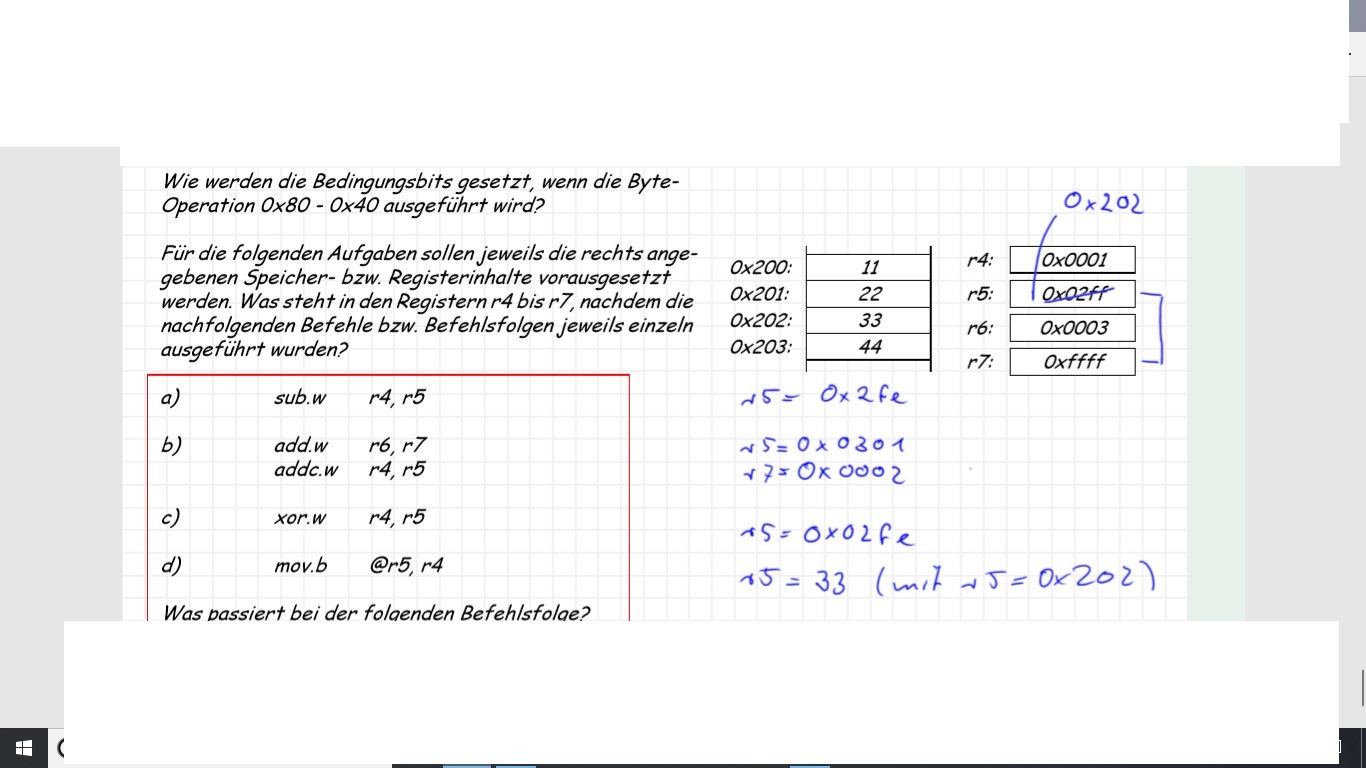 Wie werden die Bedingungsbits gesetzt, wenn die Byte-
Operation 0x80 - 0x40 ausgeführt wird?
0x202
Für die folgenden Aufgaben sollen jeweils die rechts ange-
gebenen Speicher- bzw. Registerinhalte vorausgesetzt
werden. Was steht in den Registern r4 bis r7, nachdem die
nachfolgenden Befehle bzw. Befehlsfolgen jeweils einzeln
ausgeführt wurden?
0x200: 11
0x201: 22
0x202: 33
0x203: 44
r4: 0x0001
r5: 0x02ff
r6: 0x0003
r7: 0xffff
a) sub.w r4, r5
r5= 0x2fe
b) add.w r6, r7
r5=0x0301
addc.w r4, r5
r7=0x0002
c) xor.w r4, r5
r5=0x02fe
d) mov.b @r5, r4
r5=33 (mit r5=0x202)
Was passiert bei der folgenden Befehlsfolge?